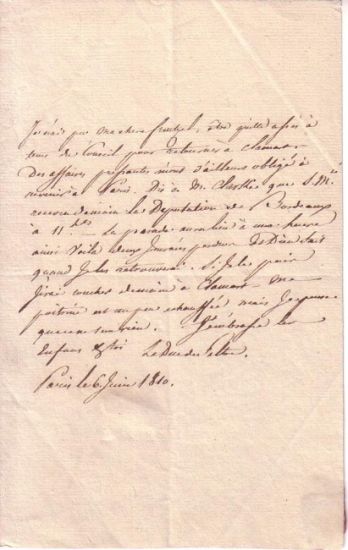 Je n'ai pu ma chère
tems du Conseil pour retourner à Clamart
Des affaires pressantes m'ont d'ailleurs obligé à
revenir à Paris. Dis à M. que S. M.té
recevra demain la Députation de Bordeaux
à 11 h.res La parade aura lieu à une heure
ainsi voilà deux journées perdues et Dieu sait
quand je les retrouverai. Si je le puis
j'irai coucher demain à Clamart ma
poitrine est un peu échauffée mais j'espère
que ce ne sera rien. J'embrasse les
Enfans & toi Le Duc de Feltre
Paris le 6 Juin 1810.